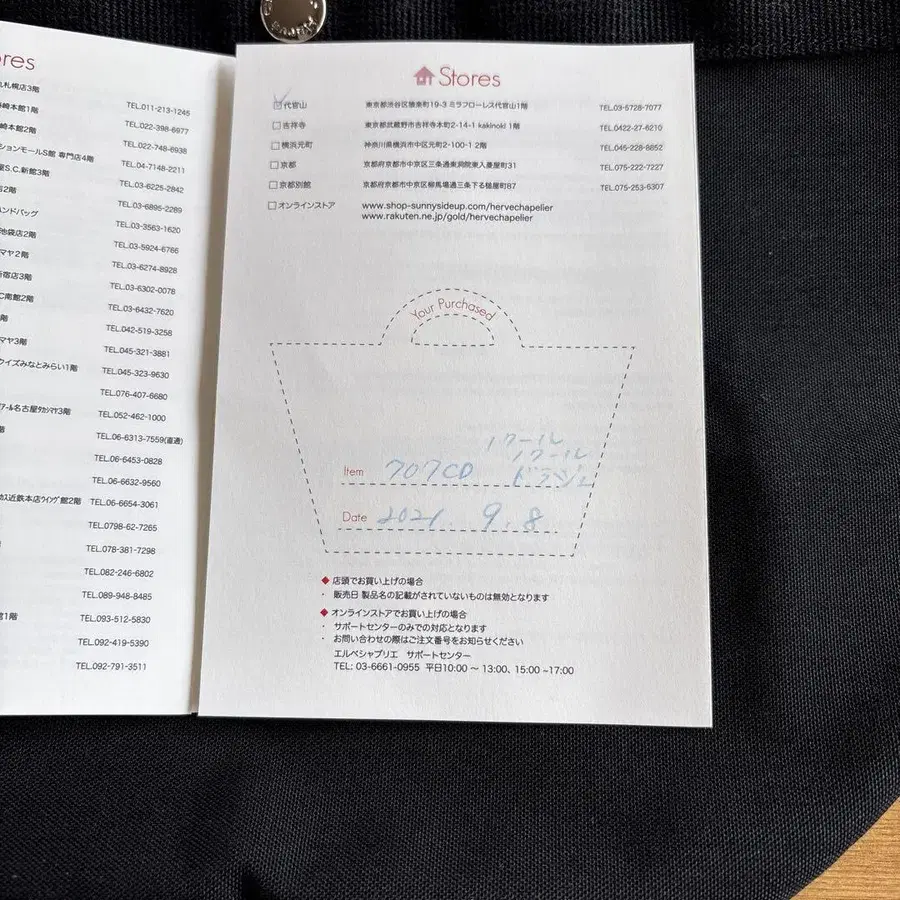 Stores
札幌店3階 TEL.011-213-1246
崎本館1階 TEL.022-398-6977
崎本館2階 TEL.022-748-6938
ションモールS館 専門店4階 TEL.04-7148-2211
屋S.C.新館3階 TEL.03-6225-2842
店2階 TEL.03-6895-2289
ハンドバッグ TEL.03-3563-1620
池袋店2階 TEL.03-5924-6766
マヤ2階 TEL.03-6274-8928
新宿店3階 TEL.03-6302-0078
C南館2階 TEL.03-6432-7620
階 TEL.042-519-3258
マヤ3階 TEL.045-321-3881
クイズみなとみらい1階 TEL.045-323-9630
TEL.076-407-6680
ｱｰﾙ名古屋ﾀｶｼﾏﾔ3階 TEL.052-462-1000
階 TEL.06-6313-7559(直通)
TEL.06-6453-0828
TEL.06-6632-9560
ｶｽ近鉄本店ｳｲﾝｸﾞ館2階 TEL.06-6654-3061
TEL.0798-62-7265
TEL.078-381-7298
TEL.082-246-6802
TEL.089-948-8485
館1階 TEL.093-512-5830
TEL.092-419-5390
TEL.092-791-3511
Stores
代官山 東京都渋谷区猿楽町19-3 ミラフローレス代官山1階 TEL.03-5728-7077
吉祥寺 東京都武蔵野市吉祥寺本町2-14-1 kakinoki 1階 TEL.0422-27-6210
横浜元町 神奈川県横浜市中区元町2-100-1 2階 TEL.045-228-8852
京都 京都府京都市中京区三条通東洞院東入菱屋町31 TEL.075-222-7227
京都別館 京都府京都市中京区柳馬場通三条下る槌屋町87 TEL.075-253-6307
オンラインストア www.shop-sunnysideup.com/hervechapelier
www.rakuten.ne.jp/gold/hervechapelier
Your Purchased
ノワール
ノワール
Item 707CD ドラジェ
Date 2021. 9. 8
◆ 店頭でお買い上げの場合
・ 販売日 製品名の記載がされていないものは無効となります
◆ オンラインストアでお買い上げの場合
・ サポートセンターのみでの対応となります
・ お問い合わせの際はご注文番号をお知らせください
エルベシャプリエ サポートセンター
TEL: 03-6661-0955 平日10:00 〜 13:00、15:00 ~17:00